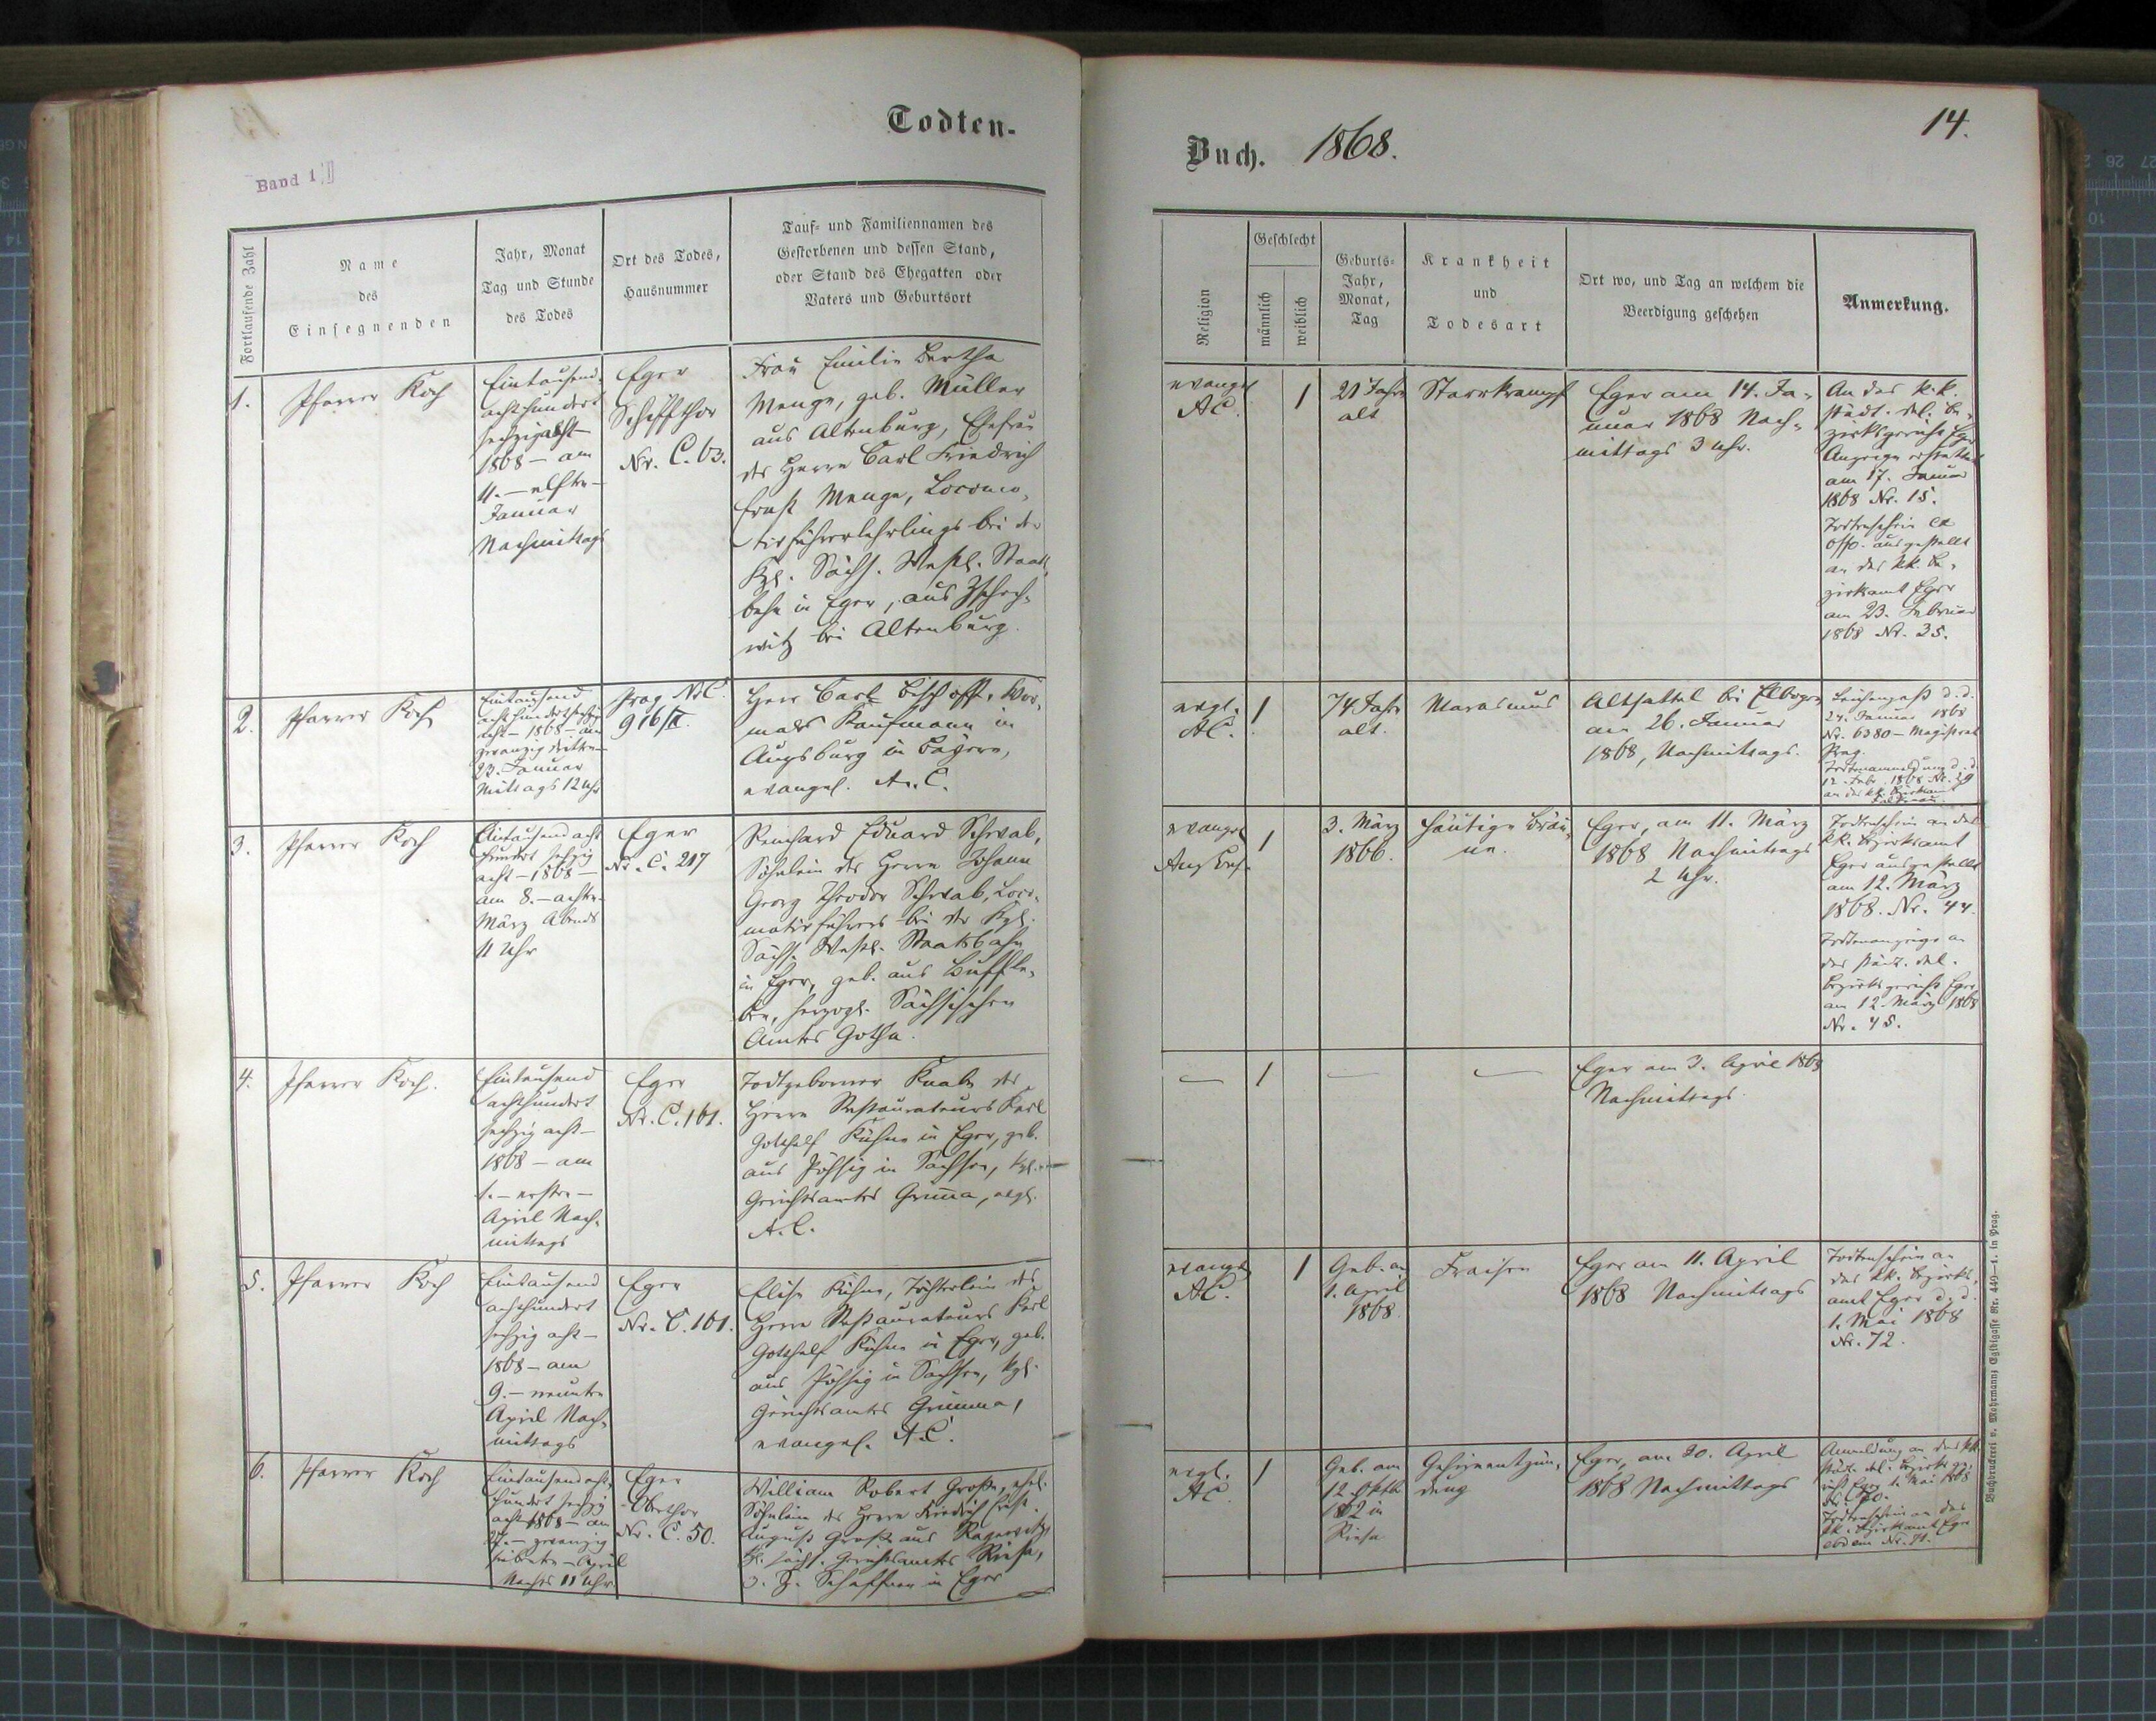 Todten-
Band 1
Fortlaufende Zahl
Name
des
Einsegnenden
Jahr, Monat
Tag und Stunde
des Todes
Ort des Todes,
Hausnummer
Tauf- und Familiennamen des
Gestorbenen und dessen Stand,
oder Stand des Ehegatten oder
Vaters und Geburtsort
1.
Pfarrer Koch
Eintausend-
achthundert
sechzigacht
1868 – am
11. – elften –
Januar
Nachmittags
Eger
Schiffthor
Nr. C. 63.
Frau Emilie Bertha
Menge, geb. Müller
aus Altenburg, Ehefrau
des Herrn Carl Friedrich
Ernst Menge, Locomo-
tivführerlehrlings bei der
Kgl. Sächs. Westl. Staats-
bahn in Eger, aus
witz bei Altenburg.
2.
Pfarrer Koch
Eintausend
achthundertsechzig
acht – 1868 – am
zwanzig dritten –
23. Januar
Mittags 12 Uhr
Prag N. C.
916/II.
Herr Carl Bischoff, vor-
mals Kaufmann in
Augsburg in Bayern,
evangel. A. C.
3.
Pfarrer Koch
Eintausend acht
hundert sechzig
acht – 1868 –
am 8. – achten –
März Abends
11 Uhr
Eger
Nr. C. 217
Reinhard Eduard Schwab,
Söhnlein des Herrn Johann
Georg Theodor Schwab, Loco-
motivführers bei der Kgl.
Sächs. Westl. Staatsbahn
in Eger, geb. aus Buffle-
ben, herzogl. Sächsischen
Amtes Gotha.
4.
Pfarrer Koch.
Eintausend
achthundert
sechzig acht –
1868 – am
1. – ersten –
April Nach-
mittags
Eger
Nr. C. 161.
Todtgeborner Knabe des
Herrn Restaurateurs Karl
Gotthelf Kühne in Eger, geb.
aus Pöhsig in Sachsen, kgl.
Gerichtsamtes Grimma, evgl.
A. C.
5.
Pfarrer Koch
Eintausend
achthundert
sechzig acht –
1868 – am
9. – neunten
April Nach-
mittags
Eger
Nr. C. 161.
Elise Kühne, Töchterlein des
Herrn Restaurateurs Karl
Gotthelf Kühne in Eger, geb.
aus Pöhsig in Sachsen, kgl.
Gerichtsamtes Grimma,
evangel. A. C.
6.
Pfarrer Koch
Eintausend acht
hundert sechzig
acht – 1868 – am
27. – zwanzig
siebenten – April
Nachts 11 Uhr.
Eger
Oberthor
Nr. C. 50.
William Robert Große, ehel.
Söhnlein des Herrn Friedrich Ernst
August Große aus
K. sächs. Gerichtsamtes Riesa,
z. Z. Schaffner in Eger
Buch. 1868.
14.
Religion
Geschlecht
männlich
weiblich
Geburts-
Jahr,
Monat,
Tag
Krankheit
und
Todesart
Ort wo, und Tag an welchem die
Beerdigung geschehen
Anmerkung.
evangel
AC.
1
21 Jahre
alt
Starrkrampf
Eger am 14. Ja-
nuar 1868 Nach-
mittags 3 Uhr.
An das k. k.
städt. del. Be-
zirksgericht Eger
Anzeige erstattet
am 17. Januar
1868 Nr. 15.
Todtenschein ex
offo. ausgestellt
an das kk. Be-
zirksamt Eger
am 23. Februar
1868 Nr. 35.
evgl.
AC.
1
74 Jahr
alt.
Marasmus
Altsattel bei Elbogen
am 26. Januar
1868, Nachmittags.
Leichenpaß d. d.
24. Januar 1868
Nr. 6380 – Magistrat
Prag.
d. d.
12. Febr. 1868 Nr. 29
an das kk. Bezirksamt
Falkenau.
evangel
Augs Conf.
1
3. März
1866.
häutige Bräu-
ne.
Eger, am 11. März
1868 Nachmittags
2 Uhr.
Todtenschein an das
kk. Bezirksamt
Eger ausgestellt
am 12. März
1868. Nr. 44.
Todtenanzeige an
das städt. del.
Bezirksgericht Eger,
am 12. März 1868
Nr. 45.
1
Eger am 3. April 1868
Nachmittags
evangel
AC.
1
Geb. am
1. April
1868
Fraisen
Eger am 11. April
1868 Nachmittags
Todtenschein an
das kk. Bezirks-
amt Eger d. d.
1. Mai 1868
Nr. 72.
evgl.
AC.
1
Geb. am
12. Oktb.
in
Riesa
Gehirnentzün-
dung
Eger, am 30. April
1868 Nachmittags
Anmeldung an das kk.
städt. del. Bezirksge-
richt Eger 1. Mai 1868
Nr. 70.
Todtenschein an das
kk. Bezirksamt Eger
Nr. 71.
Buchdruckerei v. Mohrmann; Egidigasse Nr. 449—1. in Prag.